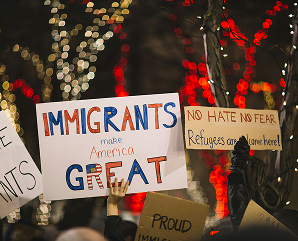 IMMIGRANTS
make
America
GREAT
NO HATE NO FEAR
Refugees are welcome here!
ANTS
PROUD
IMMIGRANT